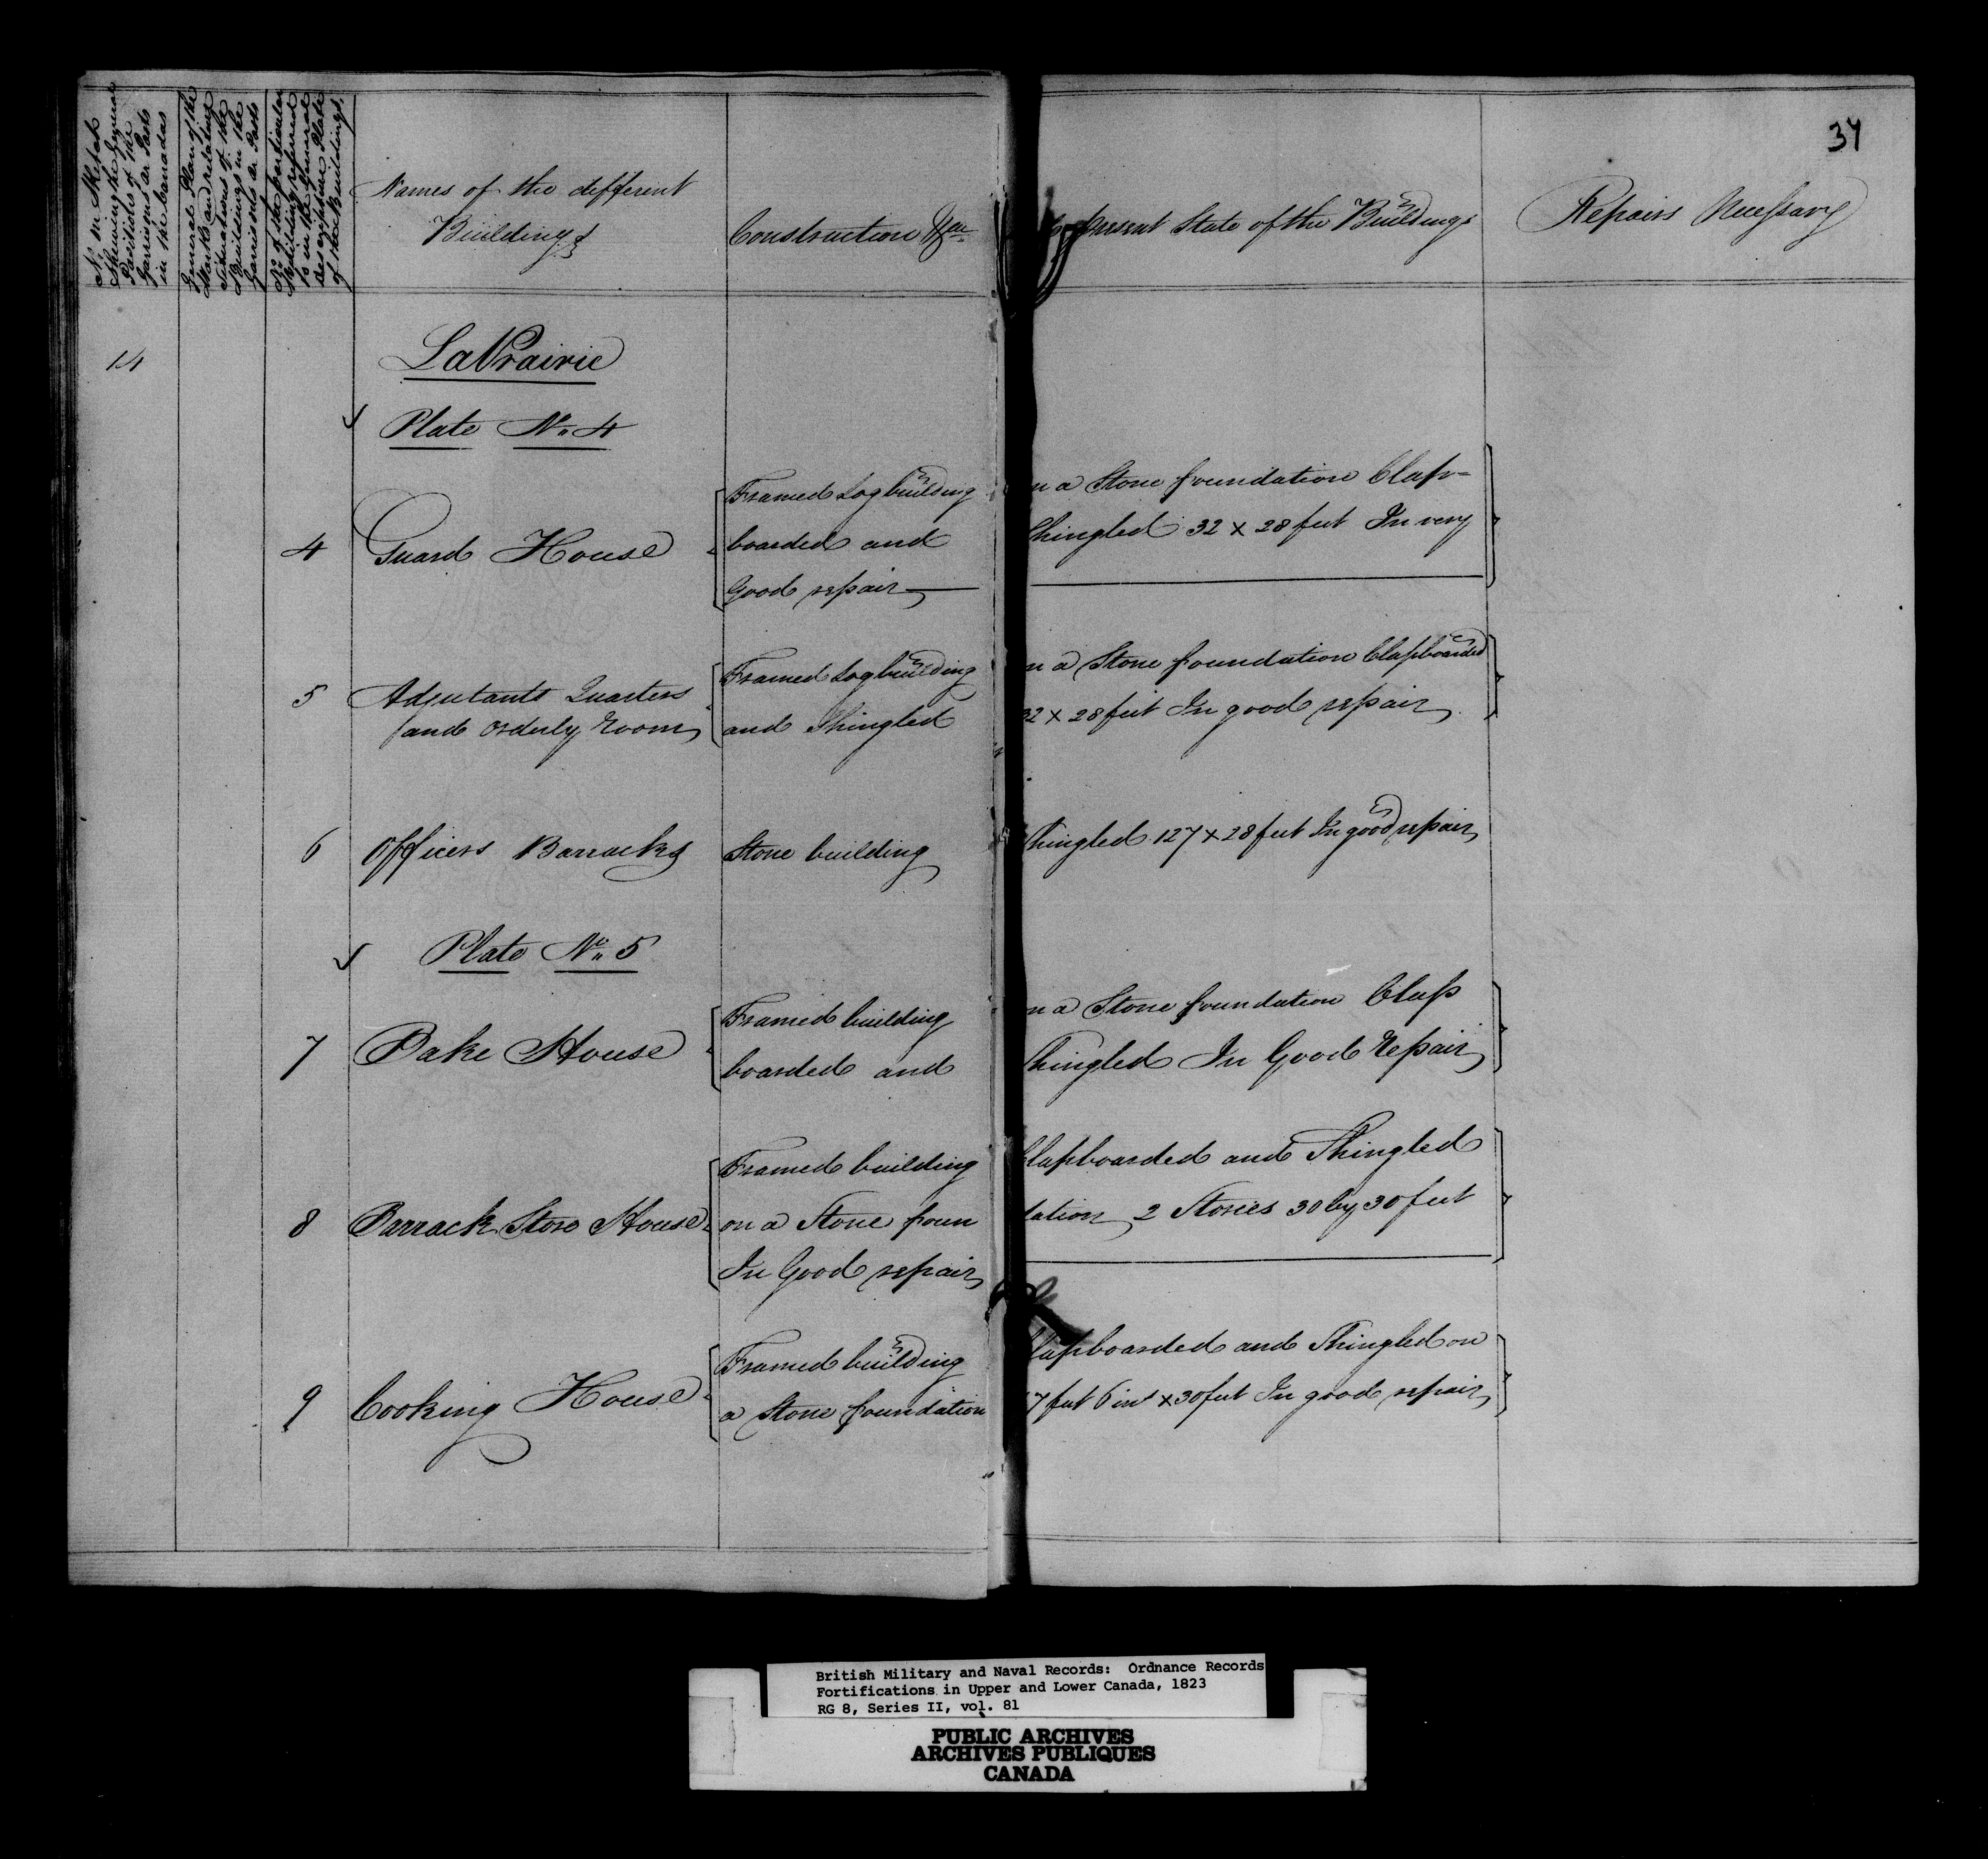 34
No. in Sketch
Shewing the General
Positions of the
Garrisons or Posts
in the Canadas
General Plan of the
Works and relative
Situations of the
Buildings in the
Garrisons or Posts
No. of the particular
Building referred
to in the General
descriptive Plate
of the Buildings.
Names of the different
Buildings
Construction &ca
present State of the Buildings
Repairs Necessary
14
LaPrairie
Plate No. 4
4 Guard House
Framed Log building n a Stone foundation Clap=
boarded and Shingled 32 x 28 feet In very
Good repair
5 Adjutants Quarters
and Orderly Room
Framed Log building n a Stone foundation Clapboarded
and Shingled 32 x 28 feet In good repair
6 Officers Barracks Stone building Shingled 127 x 28 feet In good repair
Plate No. 5
7 Bake House
Framed building n a Stone foundation Clap
boarded and Shingled In Good Repair
8 Barrack Store House
Framed building Clapboarded and Shingled
on a Stone foun dation 2 Stories 30 by 30 feet
In Good repair
9 Cooking House
Framed building Clapboarded and Shingled on
a Stone foundation 7 feet 6 ins x 30 feet In good repair
British Military and Naval Records: Ordnance Records
Fortifications in Upper and Lower Canada, 1823
RG 8, Series II, vol. 81
PUBLIC ARCHIVES
ARCHIVES PUBLIQUES
CANADA